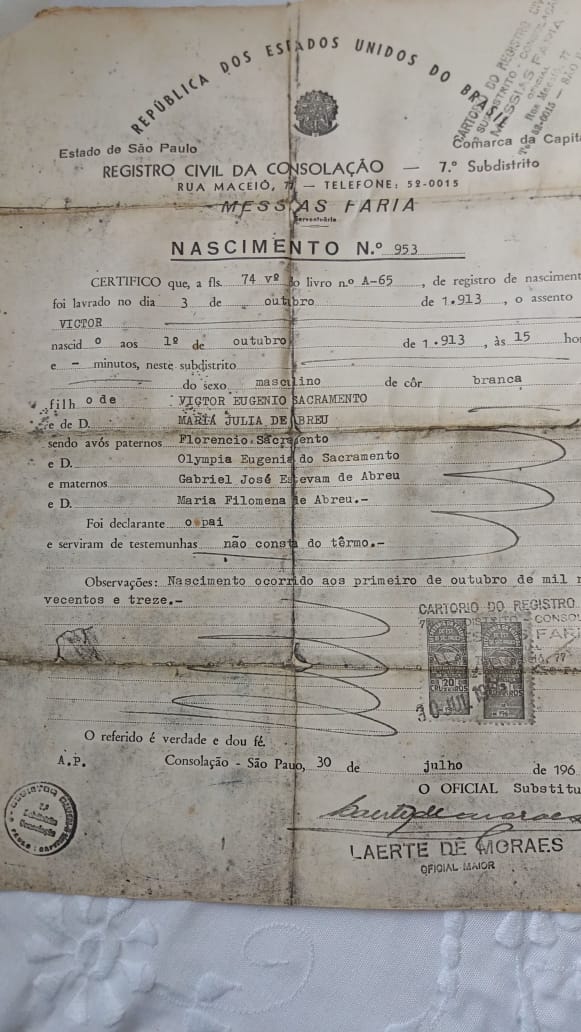 REPÚBLICA DOS ESTADOS UNIDOS DO BRASIL
CARTORIO DO REGISTRO CIV
SUBDISTRITO - CONSOLAÇÃO
MESSIAS FARIA
OFICIAL
Rua Maceió, 77
Tel. 52-0015 — SÃO P
Estado de São Paulo
Comarca da Capit
REGISTRO CIVIL DA CONSOLAÇÃO — 7.º Subdistrito
RUA MACEIÓ, 77 — TELEFONE: 52-0015
MESSIAS FARIA
Serventuário
NASCIMENTO N.º 953
CERTIFICO que, a fls. 74 vº do livro n.º A-65, de registro de nasciment
foi lavrado no dia 3 de outubro de 1.913, o assento
VICTOR
nascid o aos 1º de outubro de 1.913, às 15 ho
e - minutos, neste subdistrito
do sexo masculino de côr branca
filh o de VICTOR EUGENIO SACRAMENTO
e de D. MARIA JULIA DE ABREU
sendo avós paternos Florencio Sacramento
e D. Olympia Eugenia do Sacramento
e maternos Gabriel José Estevam de Abreu
e D. Maria Filomena de Abreu.-
Foi declarante o pai
e serviram de testemunhas não consta do têrmo.-
Observações: Nascimento ocorrido aos primeiro de outubro de mil n
vecentos e treze.-
CARTORIO DO REGISTRO
DISTRITO - CONSOL
FAR
77
20
CRUZEIROS
30 JUL 196
O referido é verdade e dou fé.
A.P. Consolação - São Paulo, 30 de julho de 196
O OFICIAL Substitu
LAERTE DE MORAES
OFICIAL MAIOR